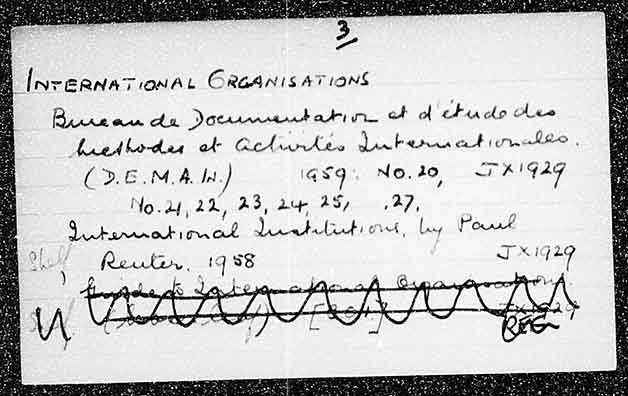 3
INTERNATIONAL ORGANISATIONS
Bureau de Documentation et d'étude des
methodes et activités Internationales.
(D.E.M.A.IN.) 1959. No. 20, JX1929
No. 21, 22, 23, 24, 25, , 27,
International Institutions, by Paul
Shelf Reuter. 1958 JX1929
International Organisations
JX1929
REG